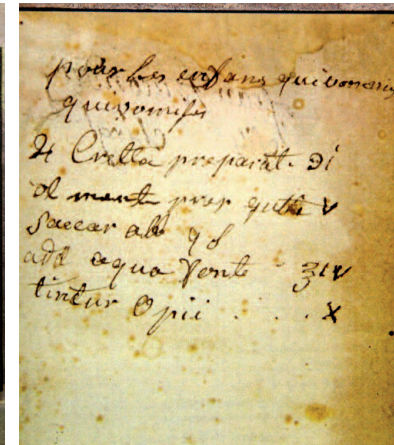 pour les enfans qui vomissent
qui vomisse
♃ Cretta preparat. ℈i
ol menth pper gutt v
Saccar alb q s
add aqua Font ʒiv
tintur Opii . . . . x